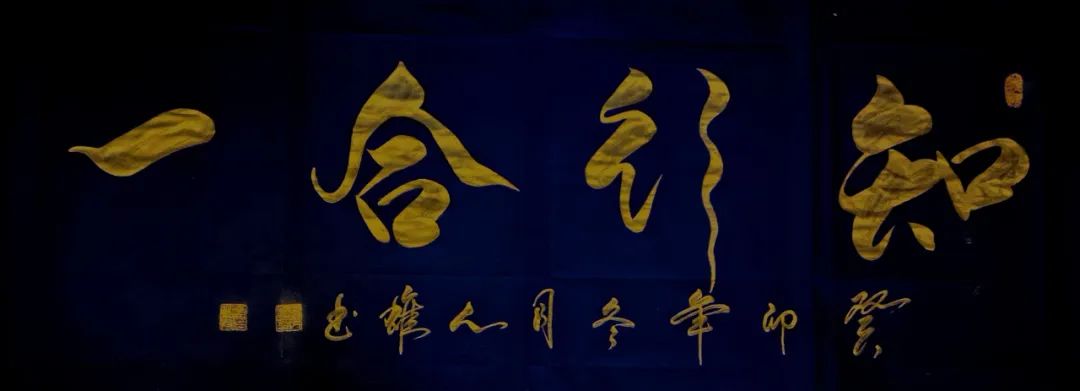 知行合一
癸卯年冬月人雄书